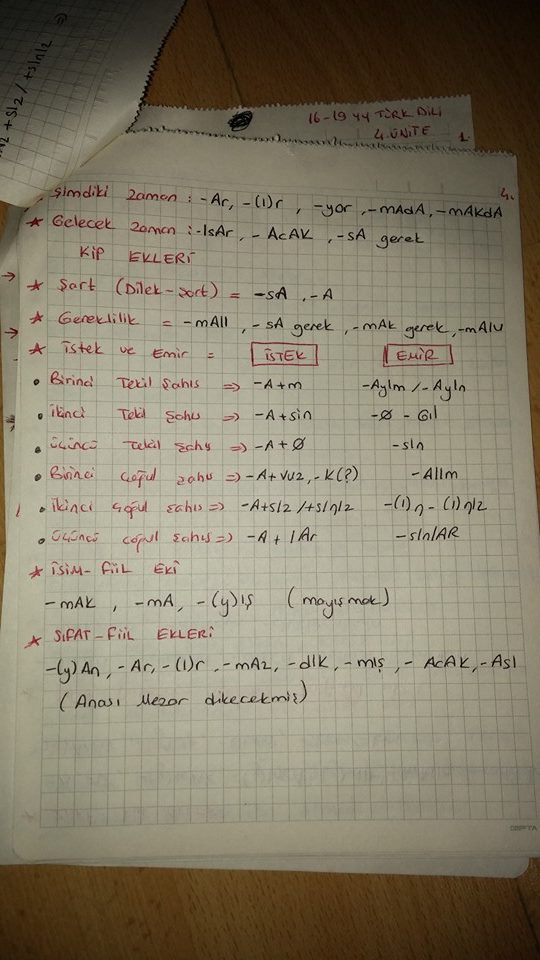 + sIz / +sInIz =>
16-19 yy TÜRK DİLİ
4. ÜNİTE 1.
4.
Şimdiki zaman : -Ar, -(I)r, -yor, -mAdA, -mAKdA
* Gelecek zaman : -IsAr, -AcAK, -sA gerek
KİP EKLERİ
* Şart (Dilek-Şart) = -sA, -A
* Gereklilik = -mAlI, -sA gerek, -mAk gerek, -mAlU
* İstek ve Emir = İSTEK EMİR
• Birinci Tekil Şahıs => -A+m -AyIm / -AyIn
• İkinci Tekil Şahıs => -A+sin -Ø -GIl
• Üçüncü Tekil Şahıs => -A+Ø -sIn
• Birinci Çoğul Şahıs => -A+vuz, -K(?) -AlIm
• İkinci Çoğul Şahıs => -A+sIz /+sIŋIz -(I)ŋ -(I)ŋIz
• Üçüncü Çoğul Şahıs => -A + lAr -sInlAR
* İSİM-FİİL EKİ
-mAK, -mA, -(y)Iş (mayışmak)
* SIFAT-FİİL EKLERİ
-(y)An, -Ar, -(I)r, -mAz, -dIk, -mIş, -AcAK, -AsI
(Anası Mezar dikecekmiş)